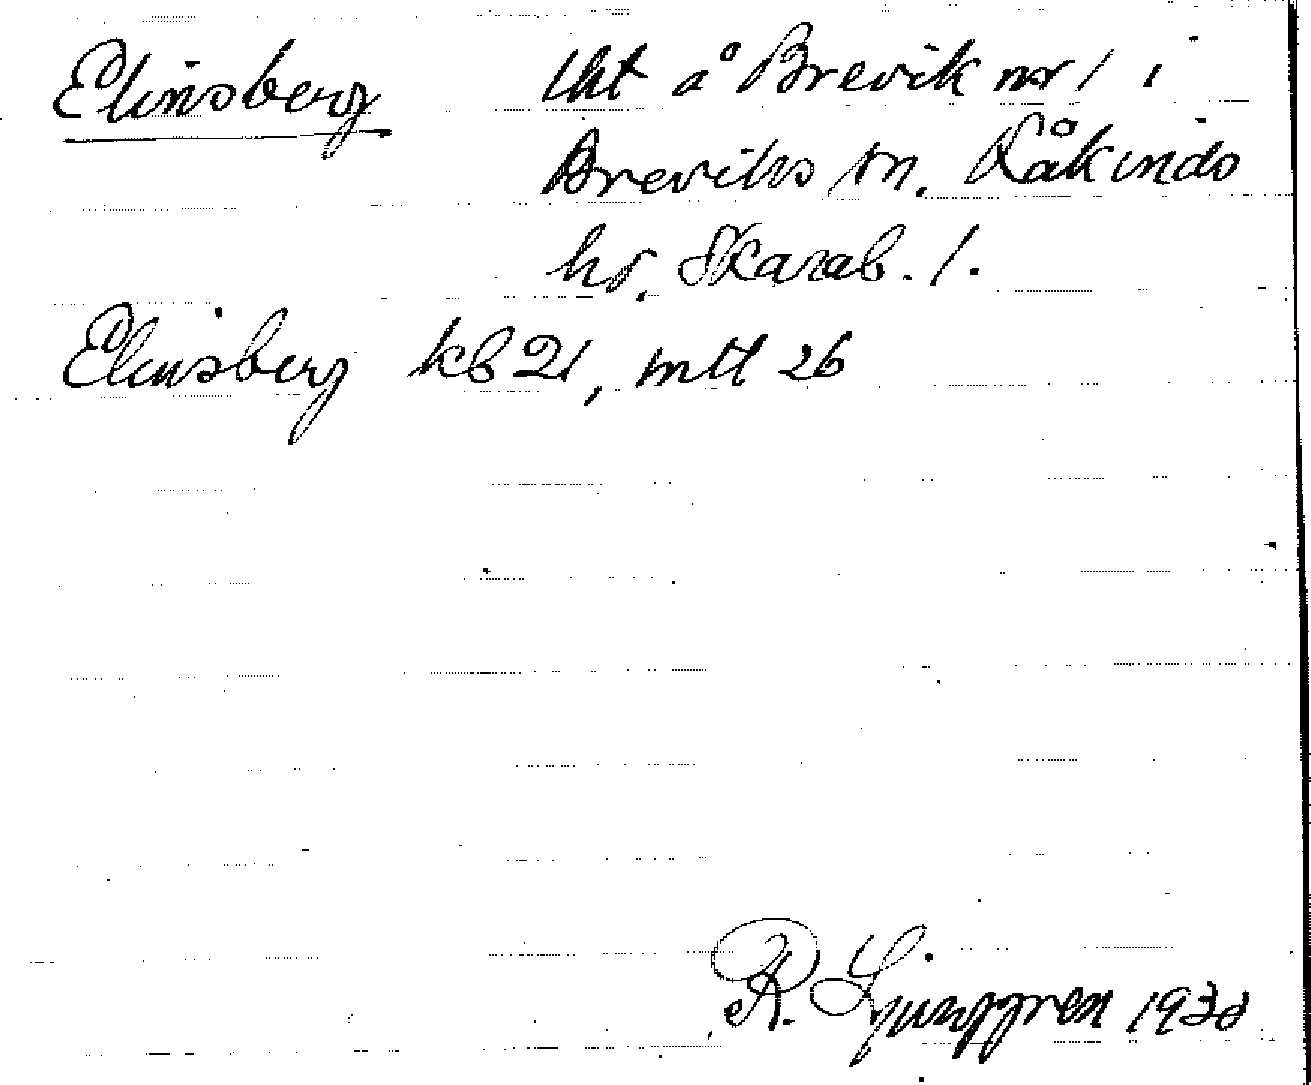 Elinsberg lht å Brevik nr 1 i
Breviks sn. Kåkinds
hd. Skarab. l.
Elinsberg kb 21, mtl 26
R. Ljunggren 193